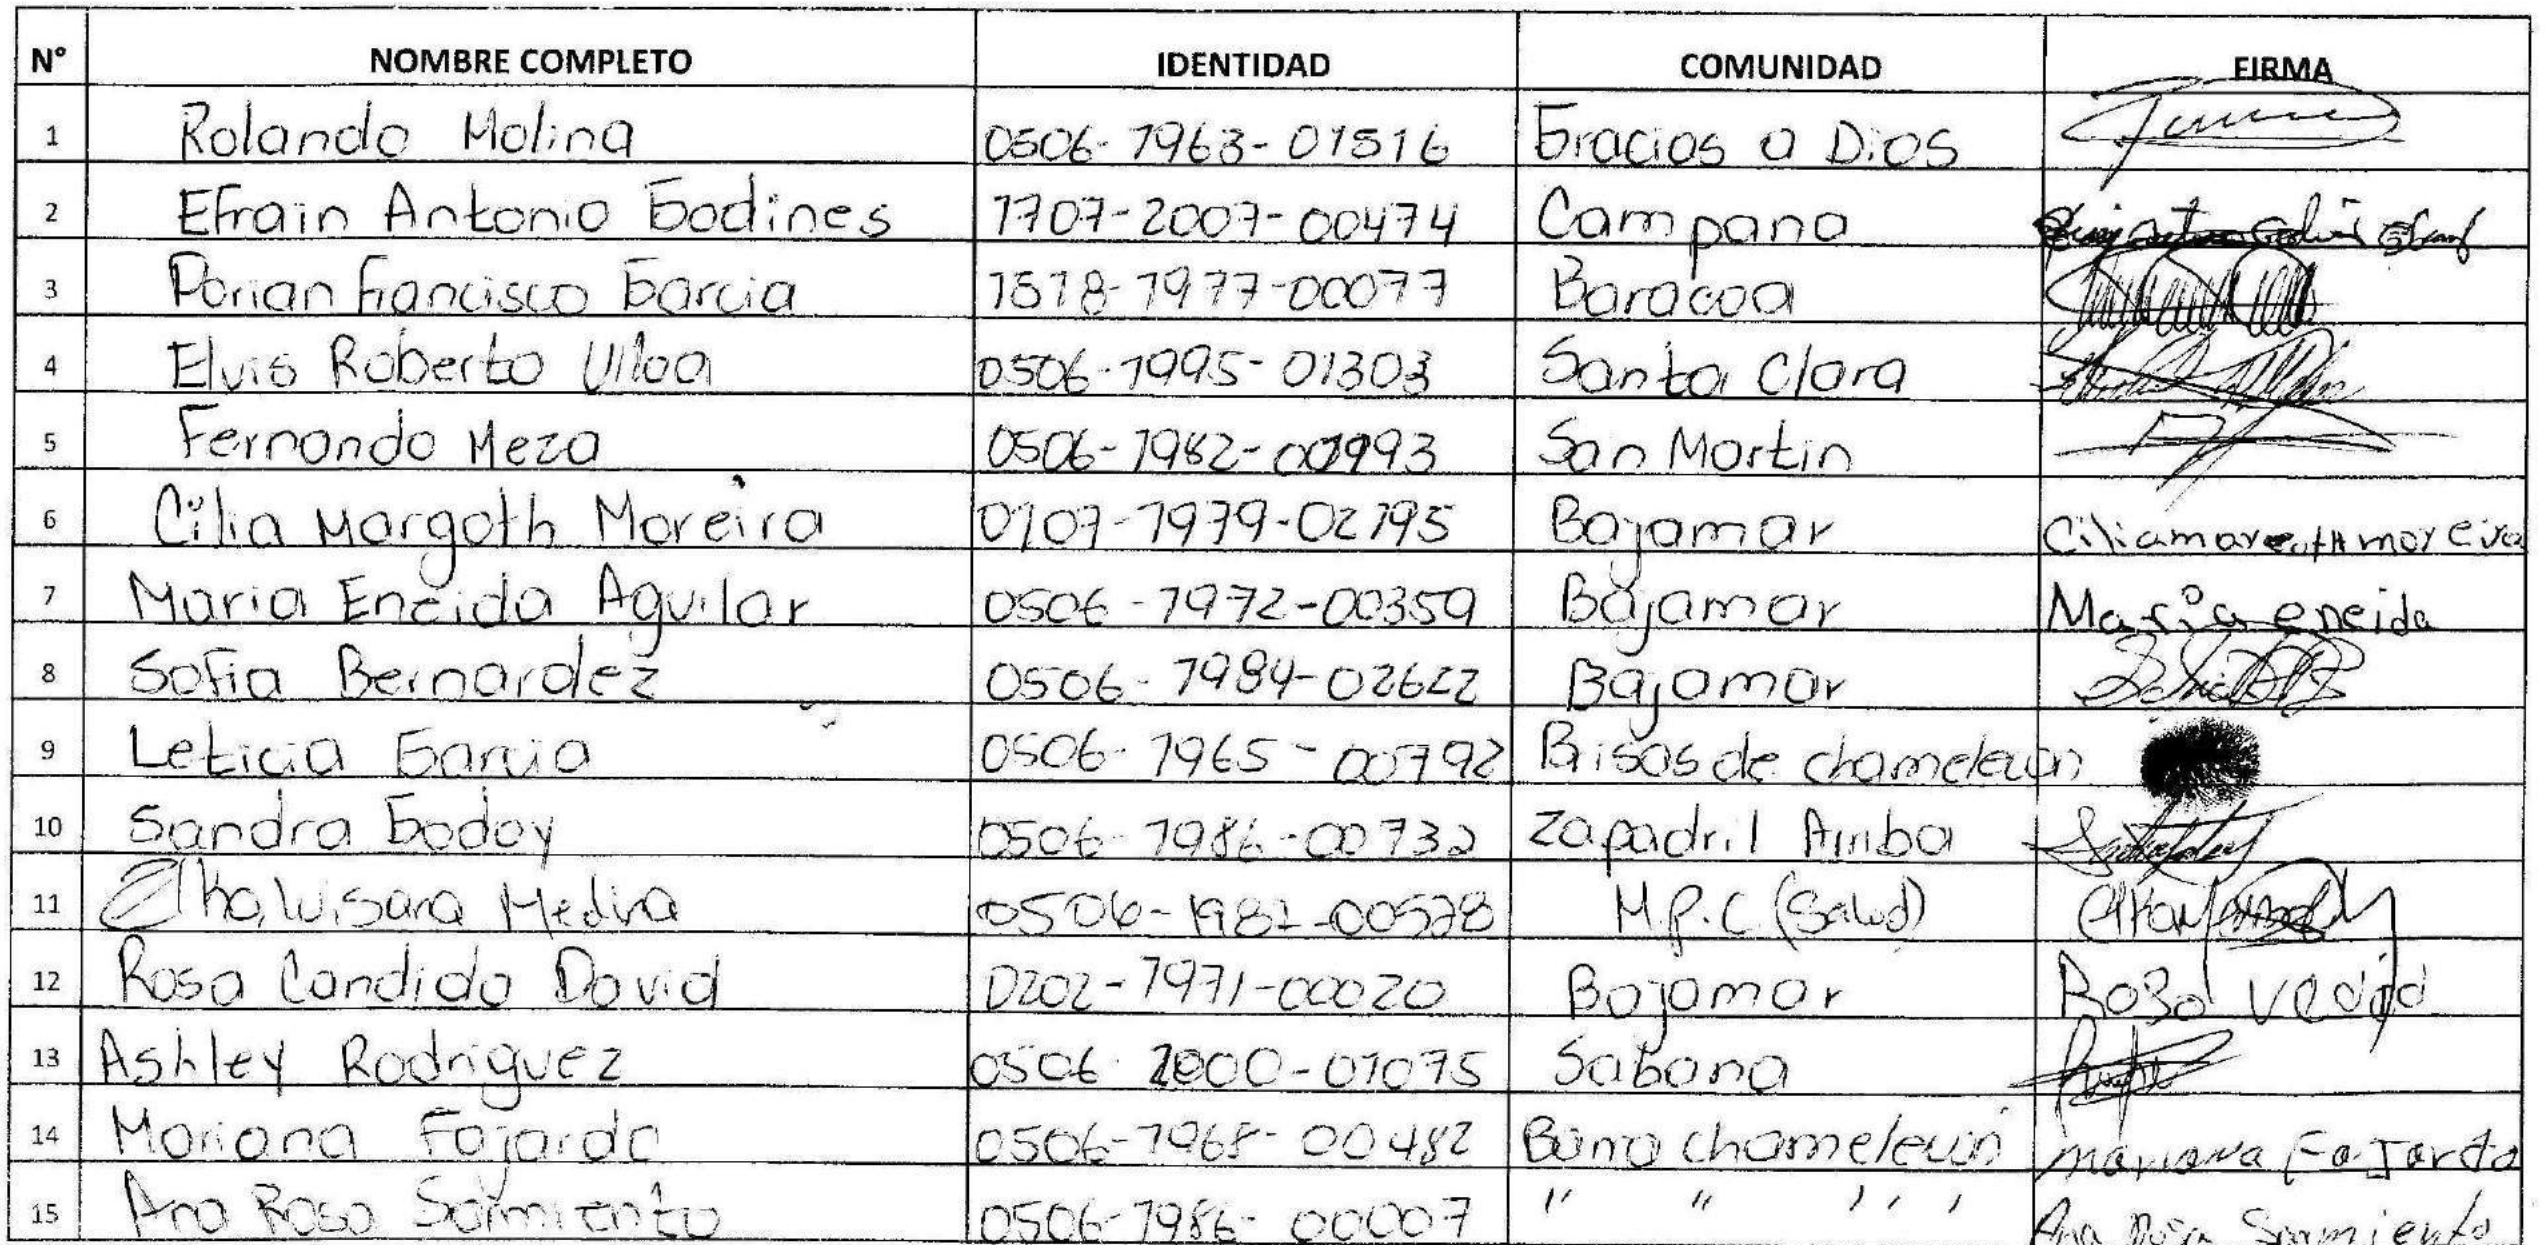 N° NOMBRE COMPLETO IDENTIDAD COMUNIDAD FIRMA
1 Rolando Molina 0506-1963-01516 Gracias a Dios
2 Efrain Antonio Godines 1707-2007-00474 Campana
3 Dorian Francisco Garcia 1518-1977-00077 Baracoa
4 Elvis Roberto Ulloa 0506-1995-01303 Santa Clara
5 Fernando Meza 0506-1982-001993 San Martin
6 Cilia Margoth Moreira 0107-1979-02195 Bajamar Ciliamargoth moreira
7 Maria Eneida Aguilar 0506-1972-00359 Bajamar Maria eneida
8 Sofia Bernardez 0506-1984-02622 Bajamar
9 Leticia Garcia 0506-1965-00792 Brisas de chamelecon
10 Sandra Godoy 0506-1986-00732 Zapadril Arriba
11 Medina M.P.C (Salud)
12 Rosa Candida David 0202-1971-00020 Bajamar Rosa
13 Ashley Rodriguez 0506-2000-01075 Sabana
14 Mariana Fajardo 0506-1968-00482 Barra chamelecon mariana FaJardo
15 Ana Rosa Sarmiento 0506-1986-00007 " " " " Ana Rosa Sarmiento